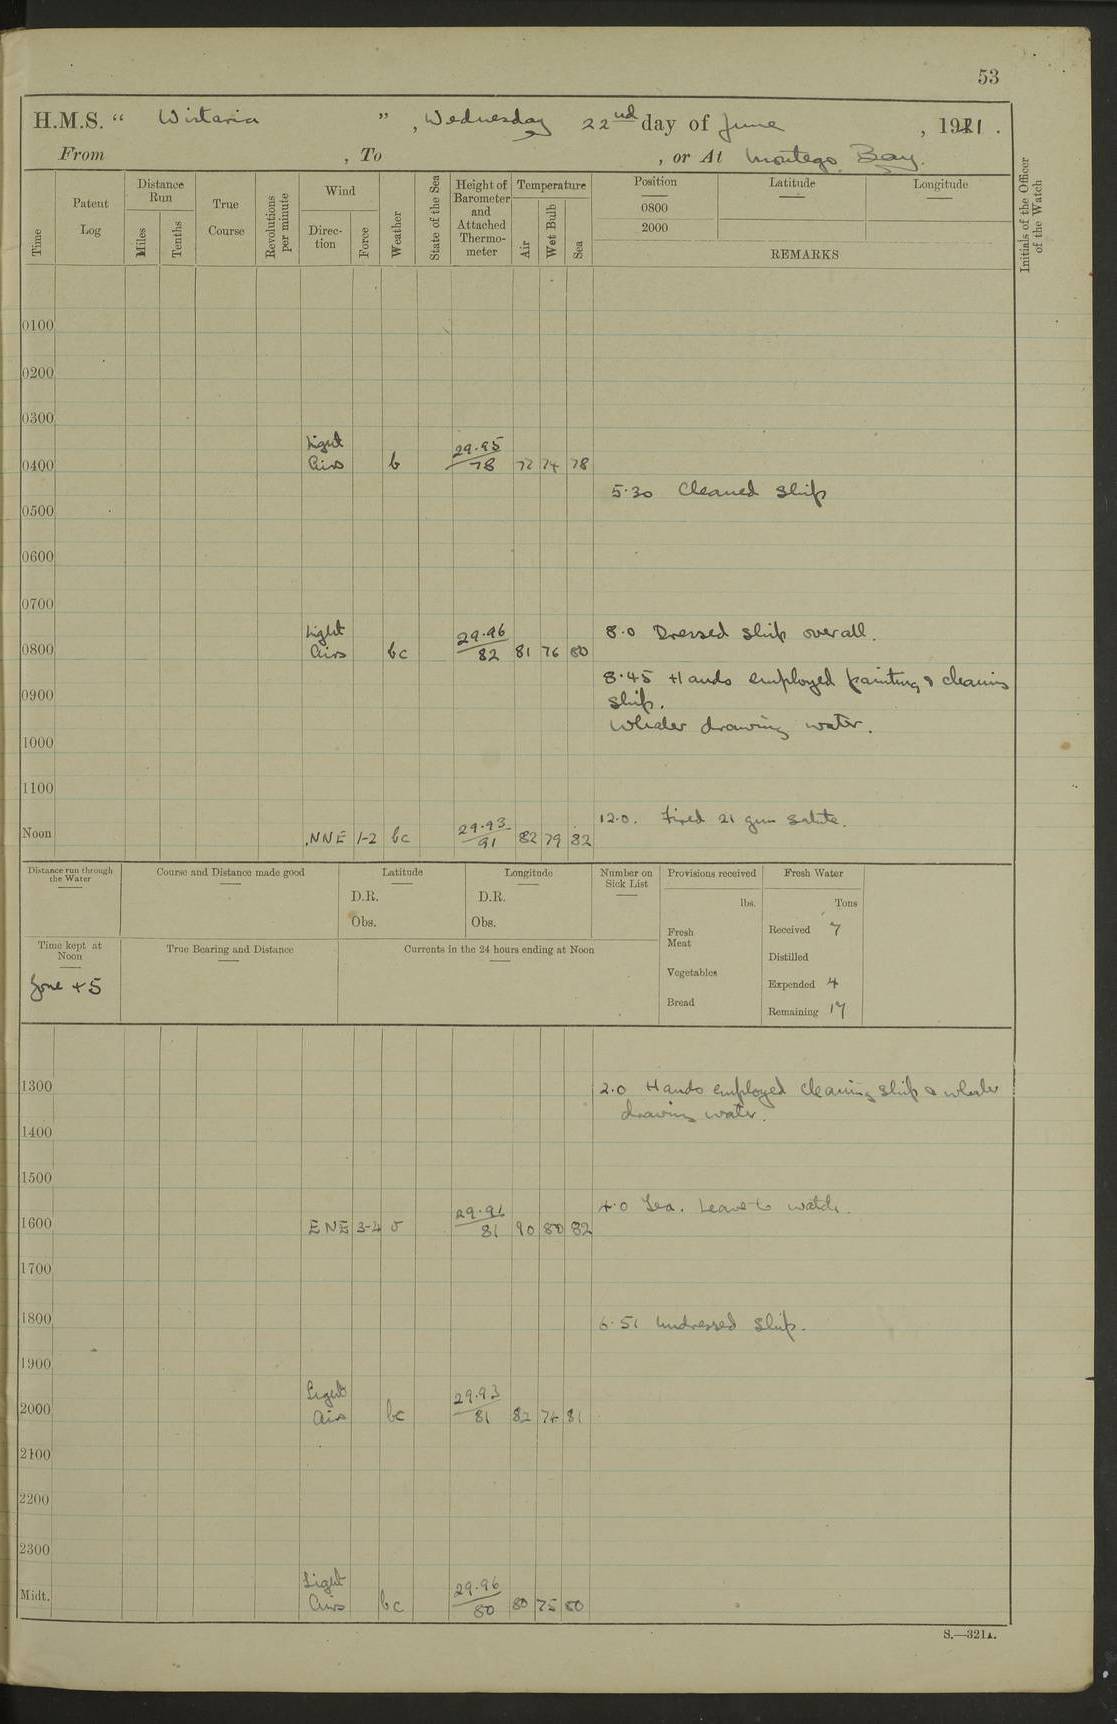 53
H.M.S. “ Wistaria ” , Wednesday 22nd day of June , 1921 .
From , To , or At Montego Bay.
Time
Patent Log
Distance Run
Miles
Tenths
True Course
Revolutions per minute
Wind
Direction
Force
Weather
State of the Sea
Height of Barometer and Attached Thermometer
Temperature
Air
Wet Bulb
Sea
Position
Latitude
Longitude
0800
2000
REMARKS
Initials of the Officer of the Watch
0100
0200
0300
Light
0400 Airs b 29.95/78 77 74 78
5.30 Cleaned ship
0500
0600
0700
Light
0800 Airs bc 29.96/82 81 76 80
8.0 Dressed ship overall.
8.45 Hands employed painting & cleaning
0900 ship.
Whaler drawing water.
1000
1100
12.0. Fired 21 gun salute.
Noon NNE 1-2 bc 29.93/91 82 79 82
Distance run through the Water
Course and Distance made good
Latitude
D.R.
Obs.
Longitude
D.R.
Obs.
Number on Sick List
Provisions received
lbs.
Fresh Meat
Vegetables
Bread
Fresh Water
Tons
Received 7
Distilled
Expended 4
Remaining 17
Time kept at Noon
Zone +5
True Bearing and Distance
Currents in the 24 hours ending at Noon
1300
2.0 Hands employed cleaning ship & whaler
drawing water.
1400
1500
4.0 Leave to watch.
1600 ENE 3-4 81 90 80 82
1700
1800
6.51 Undressed ship.
1900
Light
2000 Airs bc 29.93/81 82 74 81
2100
2200
2300
Light
Midt. Airs bc 29.96/80 80 75 80
S.—321A.